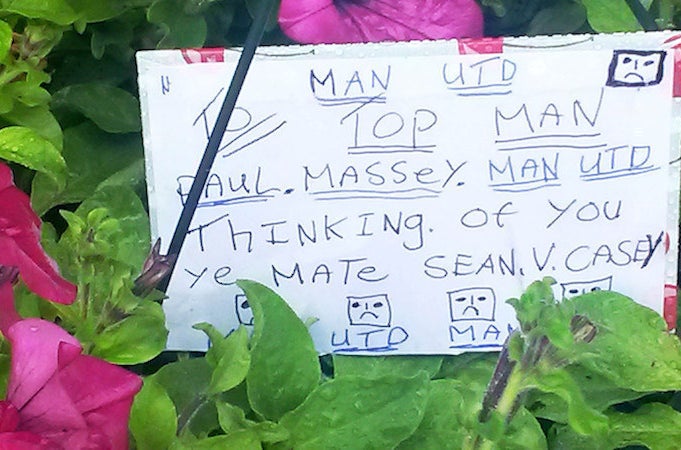 MAN UTD
TO TOP MAN
PAUL. MASSEY. MAN UTD
ThINKINg. Of YOU
Ye MATe SEAN.V.CASEY
UTD MAN